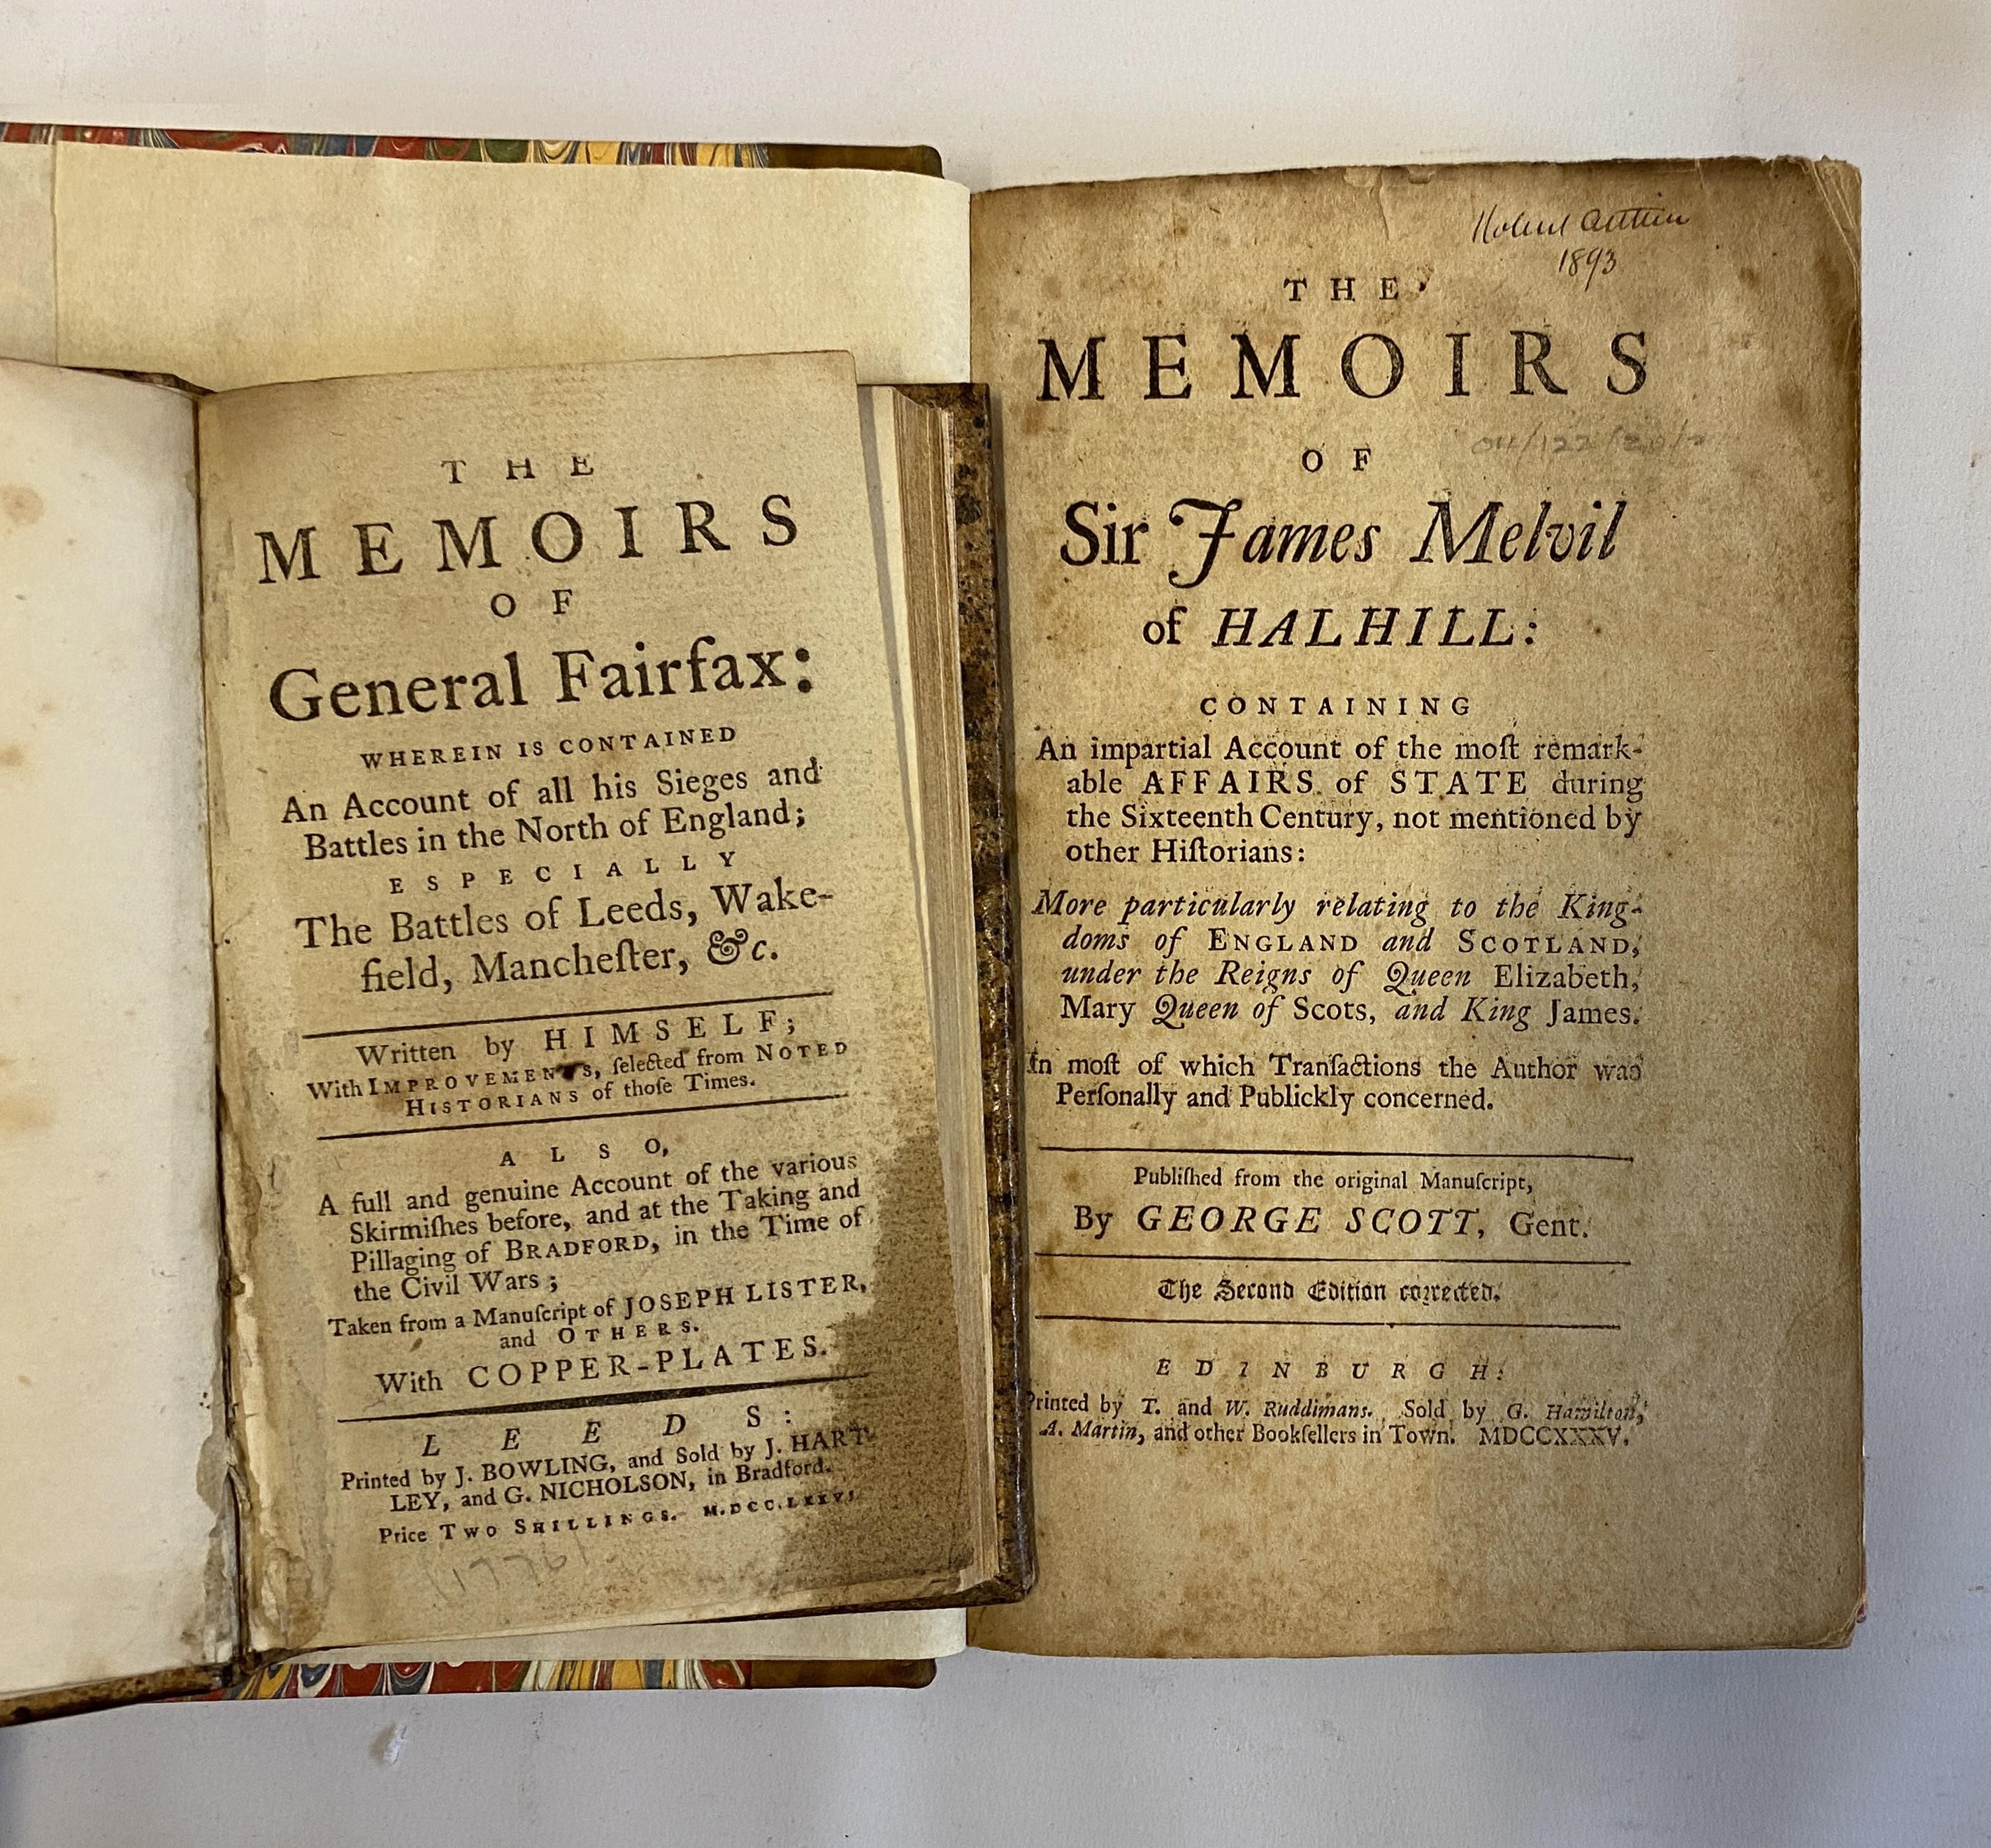 THE
MEMOIRS
OF
General Fairfax:
WHEREIN IS CONTAINED
An Account of all his Sieges and
Battles in the North of England;
ESPECIALLY
The Battles of Leeds, Wake-
field, Mancheſter, &c.
Written by HIMSELF;
With IMPROVEMENTS, ſelected from NOTED
HISTORIANS of thoſe Times.
ALSO,
A full and genuine Account of the various
Skirmiſhes before, and at the Taking and
Pillaging of BRADFORD, in the Time of
the Civil Wars;
Taken from a Manuſcript of JOSEPH LISTER,
and OTHERS.
With COPPER-PLATES.
LEEDS:
Printed by J. BOWLING, and Sold by J. HART-
LEY, and G. NICHOLSON, in Bradford.
Price TWO SHILLINGS. M.DCC.LXXVI
1776
1893
THE
MEMOIRS
OF
Sir James Melvil
of HALHILL:
CONTAINING
An impartial Account of the moſt remark-
able AFFAIRS of STATE during
the Sixteenth Century, not mentioned by
other Hiſtorians:
More particularly relating to the King-
doms of ENGLAND and SCOTLAND,
under the Reigns of Queen Elizabeth,
Mary Queen of Scots, and King James.
In moſt of which Tranſactions the Author was
Perſonally and Publickly concerned.
Publiſhed from the original Manuſcript,
By GEORGE SCOTT, Gent.
The Second Edition corrected.
EDINBURGH:
Printed by T. and W. Ruddimans. Sold by G. Hamilton,
A. Martin, and other Bookſellers in Town. MDCCXXXV.